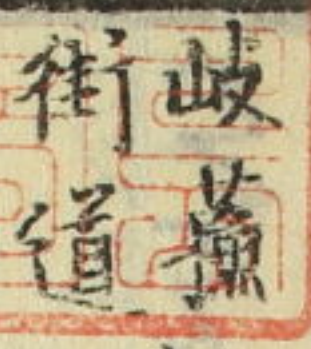 岐蘓
街道